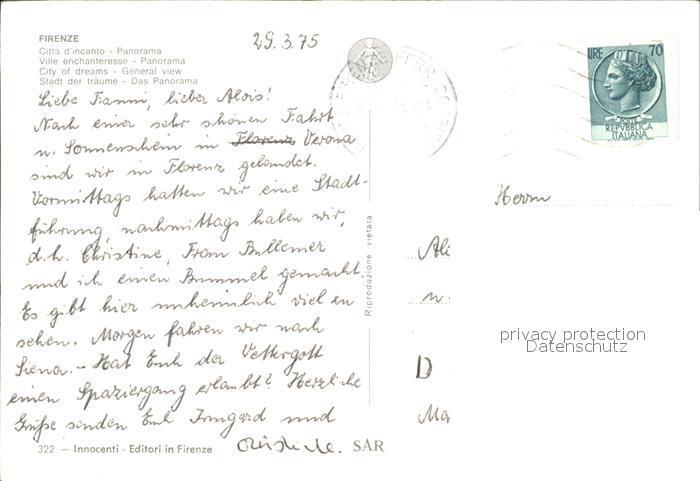 FIRENZE
Città d'incanto - Panorama
Ville enchanteresse - Panorama
City of dreams - General view
Stadt der träume - Das Panorama
29.3.75
Liebe Fanni, lieber Alois!
Nach einer sehr schönen Fahrt
u. Sonnenschein in Florenz Verona
sind wir in Florenz gelandet.
Vormittags hatten wir eine Stadt-
führung, nachmittags haben wir,
d.h. Christine, Frau Bullemer
und ich einen Bummel gemacht.
Es gibt hier unheimlich viel zu
sehen. Morgen fahren wir nach
Siena. - Hat Euch der Wettergott
einen Spaziergang erlaubt? Herzliche
Grüße senden Euch Irmgard und
Christine.
322 — Innocenti - Editori in Firenze
SAR
Riproduzione vietata
LIRE 70
POSTE
REPVBBLICA
ITALIANA
Herrn
Ali
u.
D
Ma
privacy protection
Datenschutz